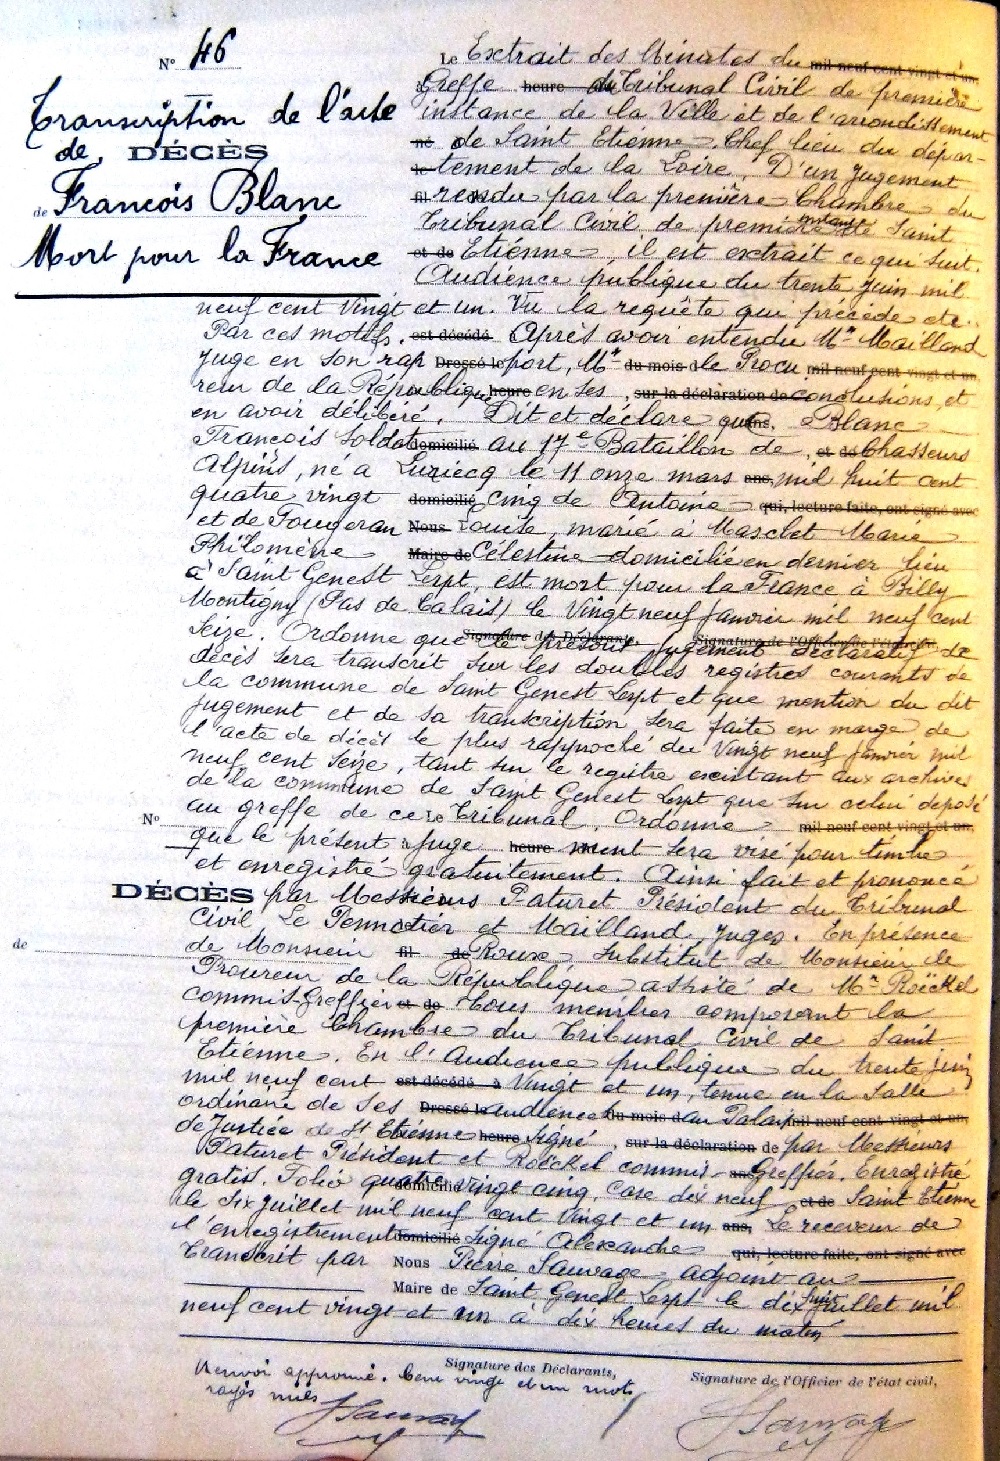 N° 46
Transcription de l'acte
de DÉCÈS
de Francois Blanc
Mort pour la France
Le Extrait des Minutes du mil neuf cent vingt et un,
Greffe heure du Tribunal Civil de première
instance de la Ville et de l'arrondissement
né de Saint Etienne Chef lieu du dépar-
le tement de la Loire. D'un jugement
fil rendu par la première Chambre du
Tribunal Civil de première instance de Saint
et de Etienne, il est extrait ce qui suit.
Audience publique du trente Juin mil
neuf cent Vingt et un. Vu la requête qui précède etc.
Par ces motifs. est décédé Après avoir entendu Mr Mailland
Juge en son rap Dressé le port, Mr du mois d le Procu mil neuf cent vingt et un
reur de la République heure en ses, sur la déclaration de conclusions, et
en avoir délibéré. Dit et déclare que Blanc
Francois Soldat domicilié au 17e Bataillon de, et de Chasseurs
Alpins, né à Luriecq le 11 onze mars ans, mil huit cent
quatre vingt domicilié cinq de Antoine qui, lecture faite, ont signé avec
et de Fougeran Nous Louise, marié à Masclet Marie
Philomène Maire de Célestine domicilié en dernier lieu
à Saint Genest Lerpt, est mort pour la France à Billy
Montigny (Pas de Calais) le Vingt neuf Janvier mil neuf cent
Seize. Ordonne que Signature des Déclarants, le présent jugement Signature de l'Officier de l'état civil, déclaratif de
décès sera transcrit sur les doubles registres courants de
la commune de Saint Genest Lerpt et que mention du dit
jugement et de sa transcription sera faite en marge de
l'acte de décès le plus rapproché du Vingt neuf Janvier mil
neuf cent Seize, tant sur le registre existant aux archives
de la commune de Saint Genest Lerpt que sur celui déposé
au greffe de ce Le Tribunal. Ordonne mil neuf cent vingt et un,
N°
que le présent juge heure ment sera visé pour timbre
et enregistré gratuitement. Ainsi fait et prononcé
DÉCÈS par Messieurs Paturet Président du Tribunal
Civil Le Pennetier et Mailland Juges. En présence
de
de Monsieur fil de Roux Substitut de Monsieur le
Procureur de la République assisté de Mr Roëckel
commis-Greffier et de Tous membres composant la
première Chambre du Tribunal Civil de Saint
Etienne. En l'Audience publique du trente juin
mil neuf cent est décédé à Vingt et un, tenue en la Salle
ordinaire de Ses Dressé le audience du mois d au Palais mil neuf cent vingt et un,
de Justice de St Etienne heure Signé, sur la déclaration de par Messieurs
Paturet Président et Roëckel commis- ans Greffier. Enregistré
gratis. Folio quatre domicilié vingt cinq, case dix neuf et de Saint Etienne
le Six Juillet mil neuf cent Vingt et un ans, Le receveur de
l'enregistrement domicilié Signé Alexandre qui, lecture faite, ont signé avec
Transcrit par Nous Pierre Sauvage adjoint au
Maire de Saint Genest Lerpt le dix huit Juillet mil
neuf cent vingt et un à dix heures du matin
Signature des Déclarants,
Signature de l'Officier de l'état civil,
Renvoi approuvé. Cent vingt et un mots
rayés nuls
Sauvage
Sauvage